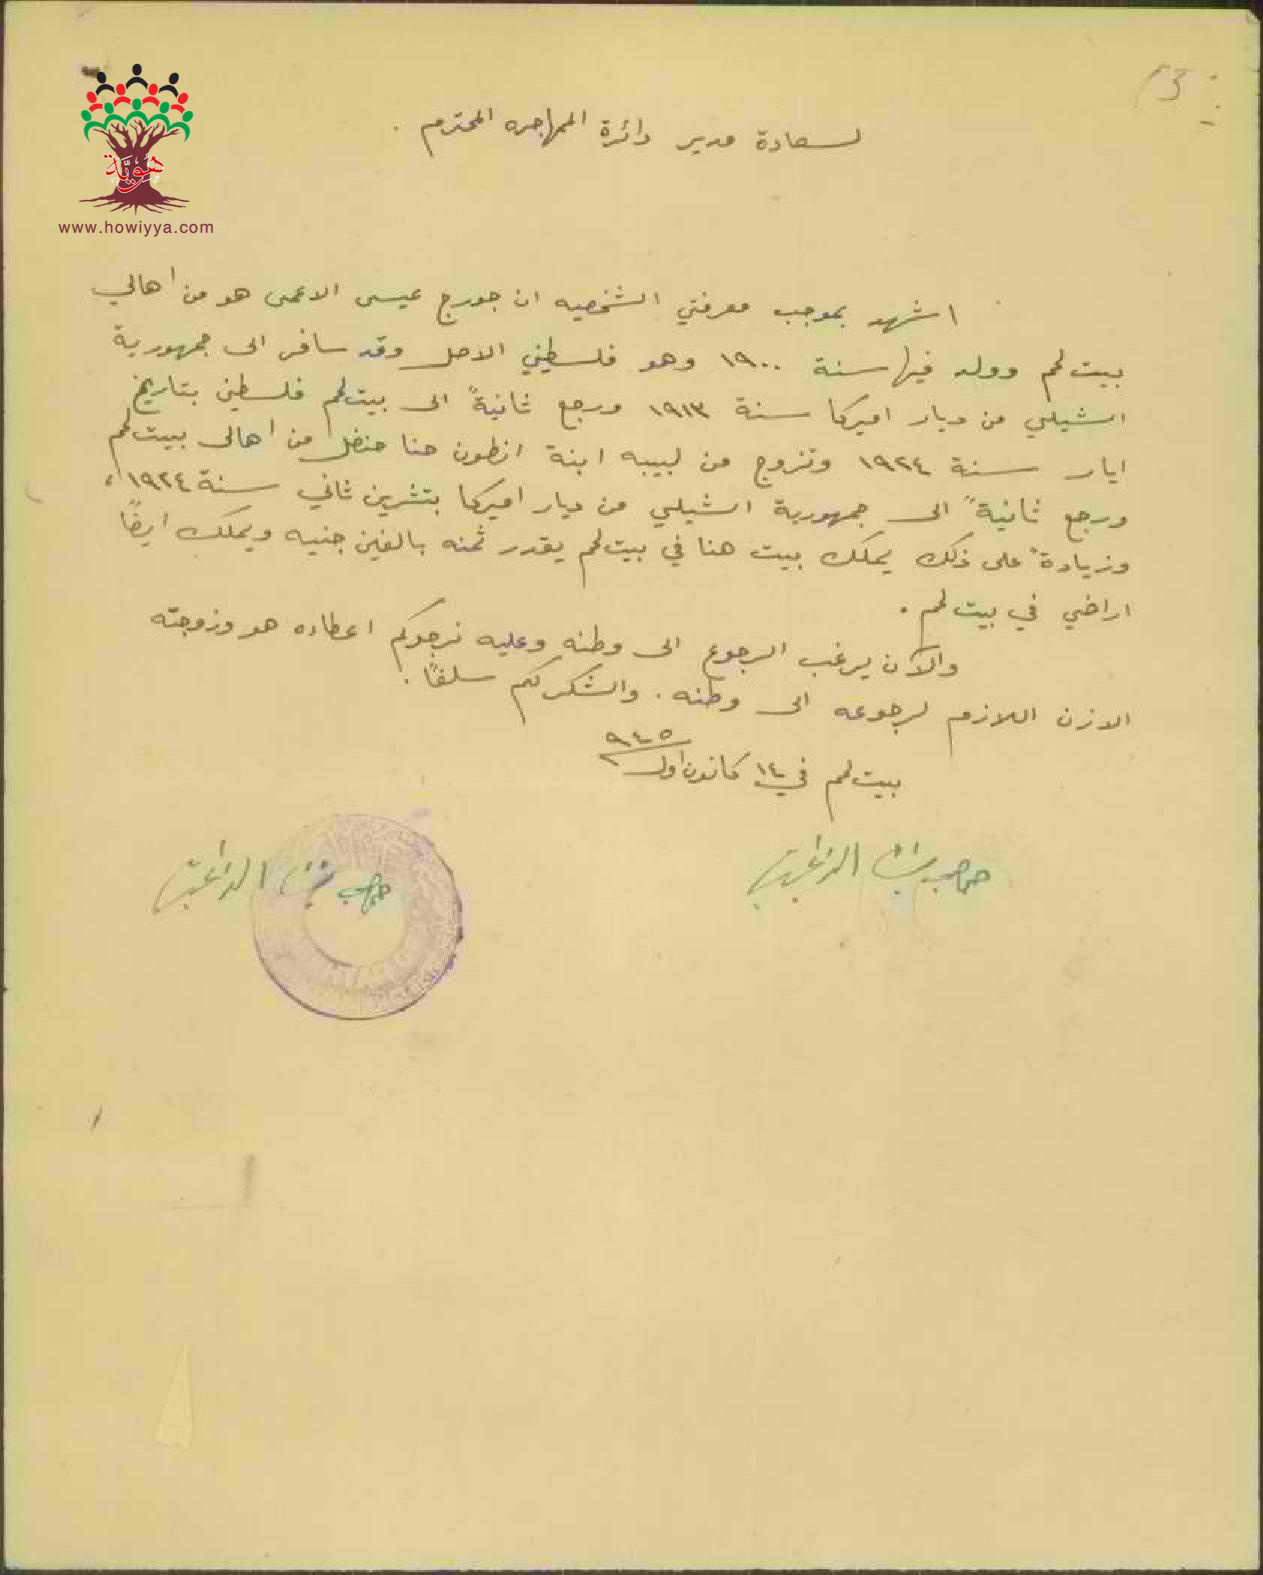 هَوِيَّة
www.howiyya.com
13
لسعادة مدير دائرة المهاجره المحترم .
اشهد بموجب معرفتي الشخصيه ان جورج عيسى الاعمى هو من اهالي
بيت لحم وولد فيها سنة ١٩٠٠ وهو فلسطيني الاصل وقد سافر الى جمهورية
الشيلي من ديار اميركا سنة ١٩١٣ ورجع ثانيةً الى بيت لحم فلسطين بتاريخ
ايار سنة ١٩٢٤ وتزوج من لبيبه ابنة انطون حنا حنضل من اهالى بيت لحم
ورجع ثانيةً الى جمهورية الشيلي من ديار اميركا بتشرين ثاني سنة ١٩٢٤ ،
وزيادةً على ذلك يملك بيت هنا في بيت لحم يقدر ثمنه بالفين جنيه ويملك ايضًا
اراضي في بيت لحم .
والآن يرغب الرجوع الى وطنه وعليه نرجوكم اعطاءه هو وزوجته
الازن اللازم لرجوعه الى وطنه . والشكر لكم سلفًا .
بيت لحم في ١٤ كانون اول ٩٤٥